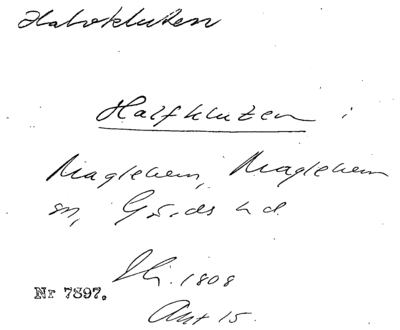 Halvkluten
Halfkluten :
Maglehem, Maglehem
sn, Gärds hd.
Ski. 1808
Nr 7897.
Akt 15.